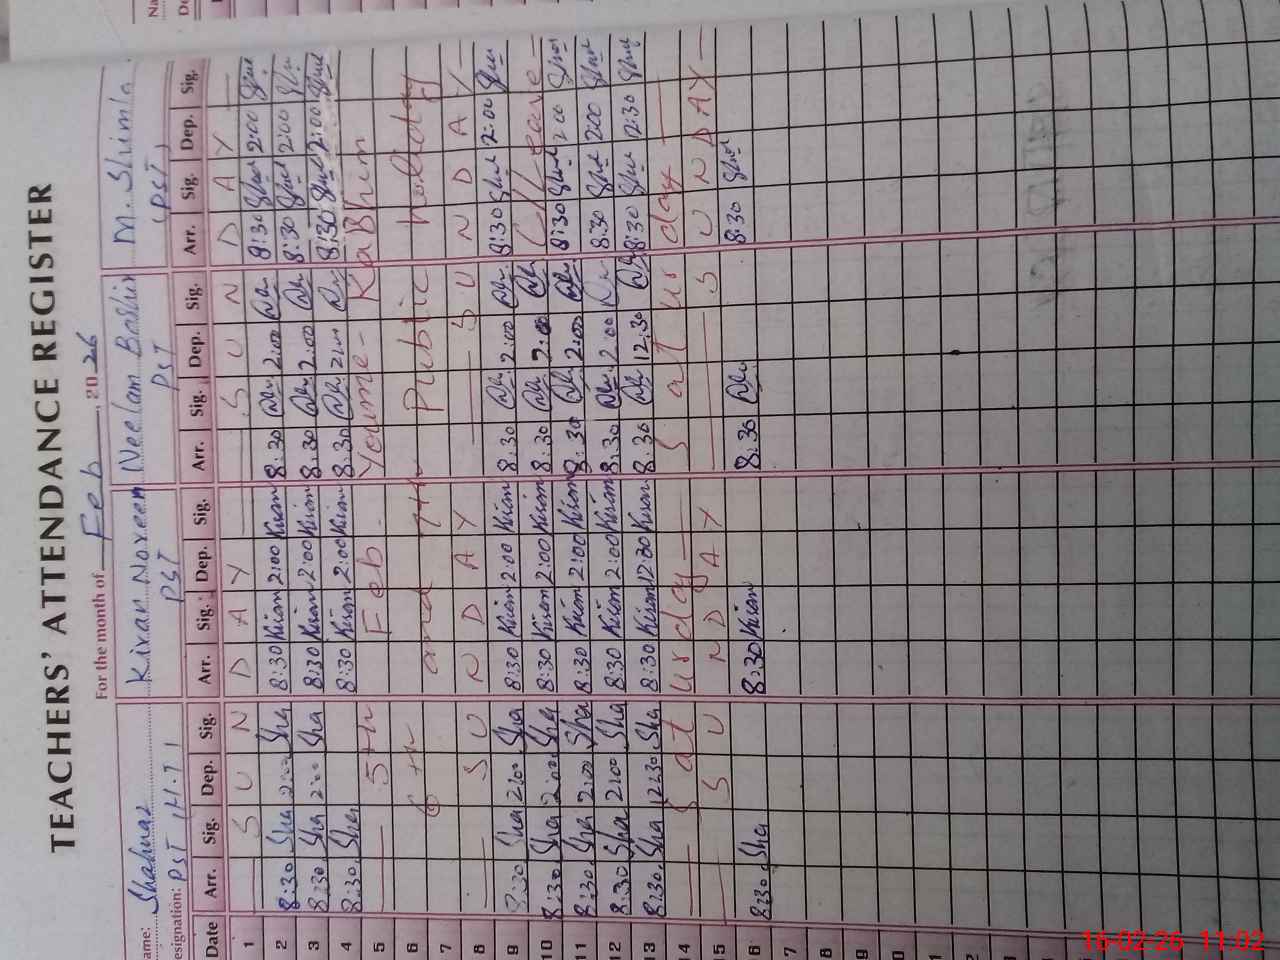 TEACHERS' ATTENDANCE REGISTER
For the month of Feb, 2026
ame: Shahnaz Kiran Noreen Neelam Bashir M. Shimla
esignation: PST, H.T PST PST (PST)
Date Arr. Sig. Dep. Sig. Arr. Sig. Dep. Sig. Arr. Sig. Dep. Sig. Arr. Sig. Dep. Sig.
1 S U N D A Y S U N D A Y
2 8:30 Sha 2:00 Sha 8:30 Kiran 2:00 Kiran 8:30 2:00 8:30 2:00
3 8:30 Sha 2:00 Sha 8:30 Kiran 2:00 Kiran 8:30 2:00 8:30 2:00
4 8:30 Sha 8:30 Kiran 2:00 Kiran 8:30 2:00 8:30 2:00
5 5th Feb
6 6th and 7th Public holiday
7
8 S U N D A Y S U N D A Y
9 8:30 Sha 2:00 Sha 8:30 Kiran 2:00 Kiran 8:30 2:00 8:30 2:00
10 8:30 Sha 2:00 Sha 8:30 Kiran 2:00 Kiran 8:30 2:00 C/Leave
11 8:30 Sha 2:00 Sha 8:30 Kiran 2:00 Kiran 8:30 2:00 8:30 2:00
12 8:30 Sha 2:00 Sha 8:30 Kiran 2:00 Kiran 8:30 2:00 8:30 2:00
13 8:30 Sha 12:30 Sha 8:30 Kiran 12:30 Kiran 8:30 12:30 8:30 12:30
14 Saturday Saturday
15 S U N D A Y S U N D A Y
6 8:30 Sha 8:30 Kiran 8:30 8:30
7
8
9
0
1
2
3
4
5
16-02-26 11:02